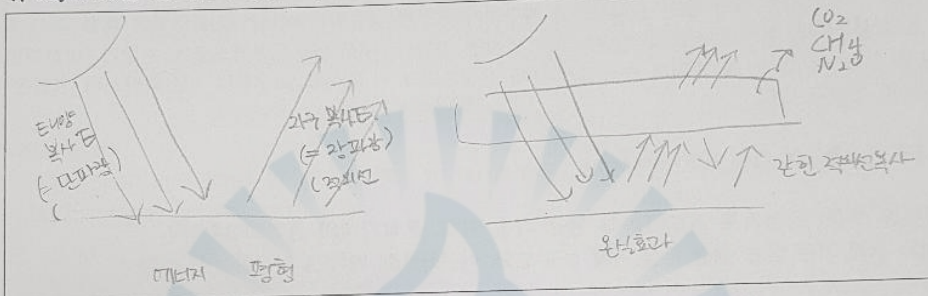 태양
복사E
(= 단파장)
(
지구 복사E
(= 장파장)
(적외선
에너지 평형
CO2
CH4
N2O
갇힌 적외선복사
온실효과